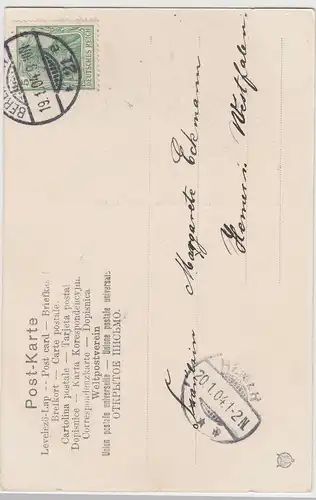 Post-Karte
Levelező-Lap -- Post card — Briefkaart
Brefkort — Carte postale.
Cartolina postale — Tarjeta postal
Dopisnice - Karta Korespondencyjna
Correspondenzkarte — Dopisnica
Weltpostverein
Union postale universelle — Unione postale universale
ОТКРЫТОЕ ПИСЬМО.
DEUTSCHES REICH
BERLIN
19.1.04
* 21 *
Fräulein
Margarete Eckmann
Hemern Westfalen
HEMER
20.1.04.1-2N